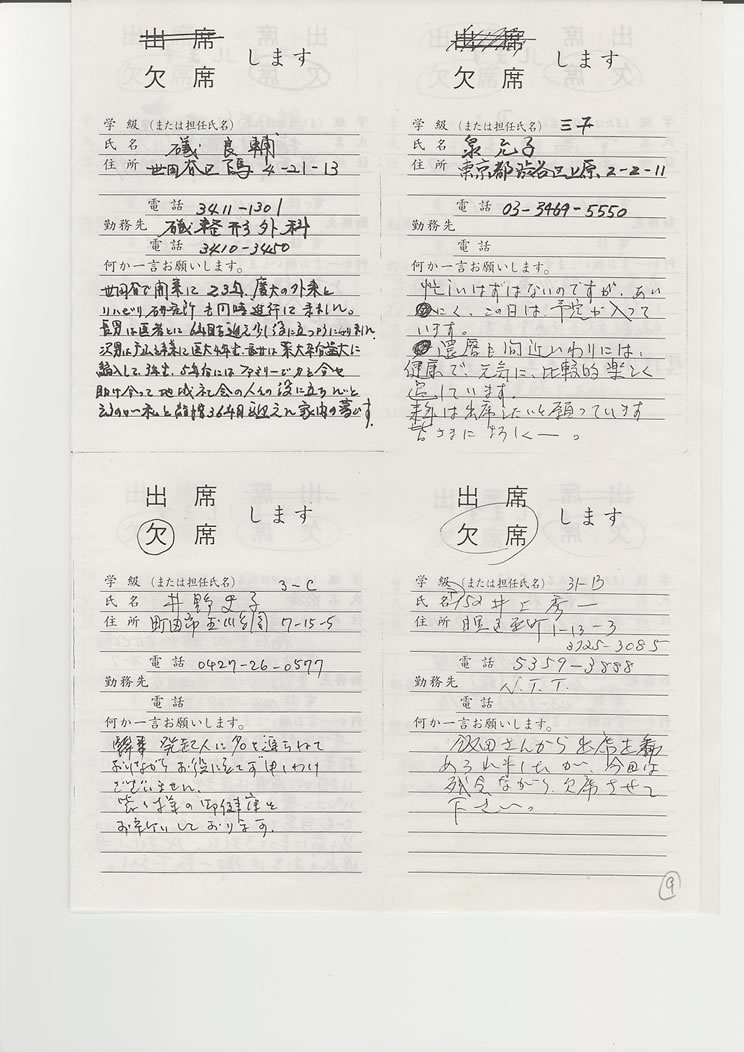 出席
欠席 します
学級 (または担任氏名)
氏名 磯 良輔
住所 世田谷区 4-21-13
電話 3411-1301
勤務先 磯整形外科
電話 3410-3450
何か一言お願いします。
世田谷で開業して23年、慶大の外来と
リハビリ研究所も同時進行に
長男は医者として
次男は
編入して3年生、5年後にはファミリーで力を合せ
助け合って地域社会の人々の役に立ちたいと
結婚36年目を迎えた家内の夢です。
出席
欠席 します
学級 (または担任氏名) 三千
氏名 泉 允子
住所 東京都渋谷区上原、2-2-11
電話 03-3469-5550
勤務先
電話
何か一言お願いします。
忙しいはずはないのですが、あい
にく、この日は、予定が入って
います。
還暦も間近いわりには、
健康で、元気に、比較的楽しく
過しています。
来年は出席したいと願っています
皆さまによろしくー。
出席
欠席 します
学級 (または担任氏名) 3-C
氏名 井野文子
住所 町田市玉川学園 7-15-5
電話 0427-26-0577
勤務先
電話
何か一言お願いします。
発起人に名を連らねて
おりながらお役に立てず申しわけ
ございません。
皆々様の御健康を
お祈りいたしております。
出席
欠席 します
学級 (または担任氏名) 31-B
氏名 井上秀一
住所 1-13-3
3725-3085
電話 5359-3888
勤務先 N.T.T.
電話
何か一言お願いします。
飯田さんから出席を勧
められましたが、今回は
残念ながら、欠席させて
下さい。
9